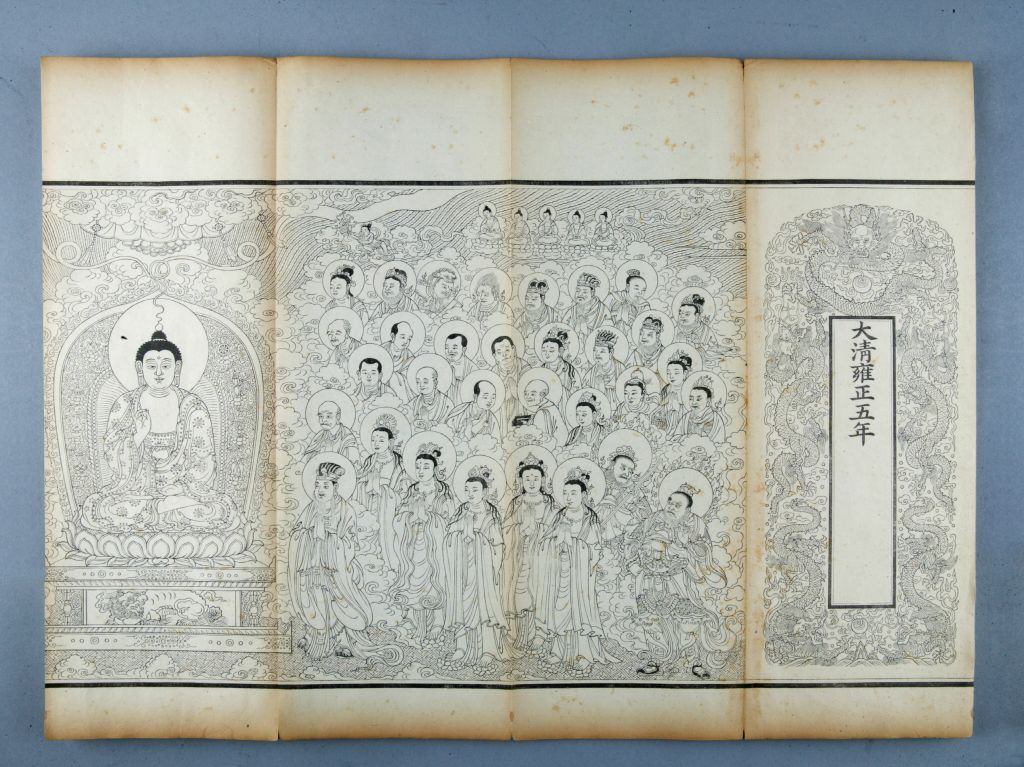 大清雍正五年